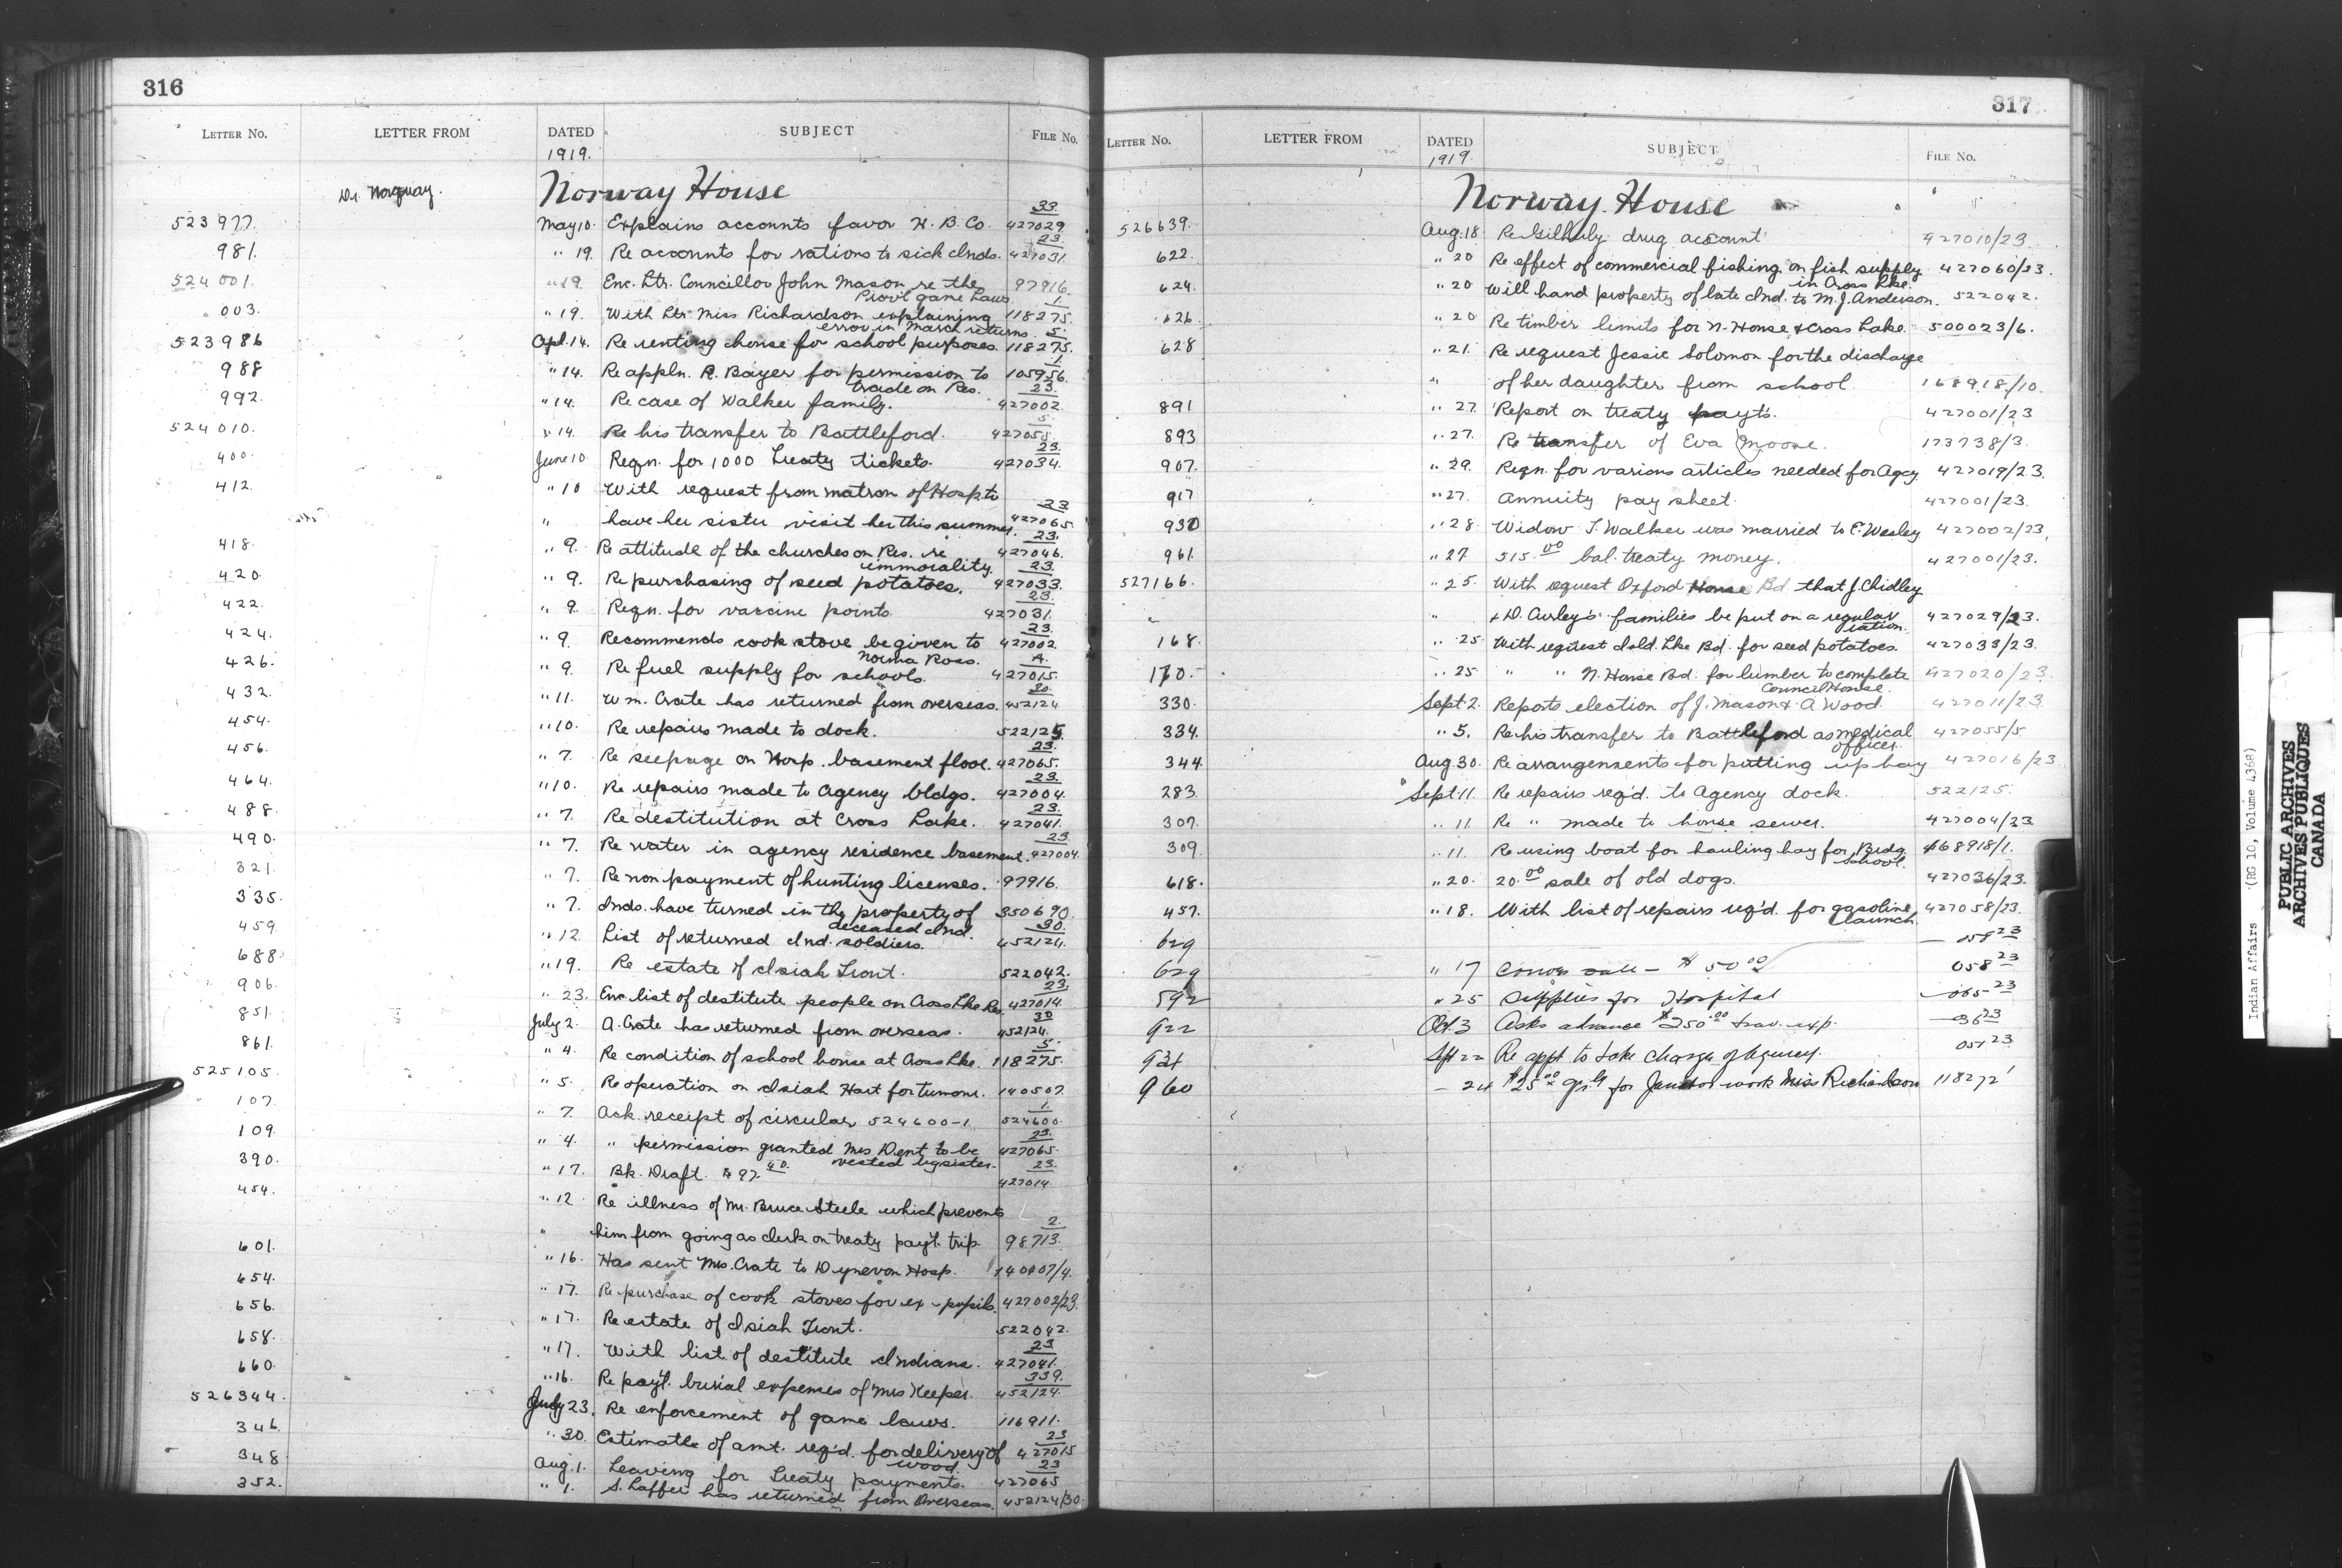 316
LETTER No. LETTER FROM DATED SUBJECT FILE No.
1919.
Dr. Norquay. Norway House
523977. May 10. Explains accounts favor H. B. Co. 427029 33
981. " 19. Re accounts for rations to sick Inds. 427031 23
524001. " 19. Enc. Ltr. Councillor John Mason re the 97916.
Prov'l game laws.
003. " 19. With Ltr. Miss Richardson explaining 118275. 1
error in March returns.
523986 Apl. 14. Re renting house for school purposes. 118275. 5
988 " 14. Re appln. R. Bayer for permission to 105956. 1
trade on Res.
992. " 14. Re case of Walker family. 427002. 23
524010. " 14. Re his transfer to Battleford. 427055. 5
400. June 10. Reqn. for 1000 Treaty tickets. 427034. 23
412. " 10 With request from matron of Hosp. to
" have her sister visit her this summer. 427065. 23
418. " 9. Re attitude of the churches on Res. re 427046. 23
immorality.
420. " 9. Re purchasing of seed potatoes. 427033. 23
422. " 9. Reqn. for vaccine points. 427031. 23
424. " 9. Recommends cook stove be given to 427002. 23
Norma Ross.
426. " 9. Re fuel supply for schools. 427015. A.
432. " 11. Wm. Crate has returned from overseas. 452124 30
454. " 10. Re repairs made to dock. 522125.
456. " 7. Re seepage on Hosp. basement floor. 427065. 23
464. " 10. Re repairs made to Agency bldgs. 427004. 23
488. " 7. Re destitution at Cross Lake. 427041. 23
490. " 7. Re water in agency residence basement. 427004. 23
321. " 7. Re non payment of hunting licenses. 97916.
335. " 7. Inds. have turned in the property of 350690.
deceased Ind.
459. " 12. List of returned Ind. soldiers. 452124. 30
688. " 19. Re estate of Isiah Trout. 522042.
906. " 23. Enc. list of destitute people on Cross Lke Res. 427014. 23
851. July 2. A. Crate has returned from overseas. 452124. 30
861. " 4. Re condition of school house at Cross Lke. 118275. 5
525105. " 5. Re operation on Isiah Hart for tumour. 140507.
107. " 7. Ack. receipt of circular 524600-1. 524600. 1
109. " 4. " permission granted Mrs Dent to be 427065. 23
visted by sister.
390. " 17. Bk. Draft. $97.40 427014 23
454. " 12. Re illness of Mr. Bruce Steele which prevents
" him from going as clerk on treaty pay't. trip. 98713. 2
601. " 16. Has sent Mrs. Crate to Dynevor Hosp. 140407/4.
654. " 17. Re purchase of cook stoves for ex-pupils. 427002/23.
656. " 17. Re estate of Isiah Trout. 522042.
658. " 17. With list of destitute Indians. 427041. 23
660. " 16. Re pay't. burial expenses of Mrs Keeper. 452124. 339
526344. July 23. Re enforcement of game laws. 116911.
346. " 30. Estimate of amt. req'd. for delivery of 427015 23
wood.
348 Aug. 1. Leaving for Treaty payments. 427065 23
352. " 1. S. Laffer has returned from Overseas. 452124/30.
317
LETTER No. LETTER FROM DATED SUBJECT FILE No.
1919.
Norway House
526639. Aug. 18. Re Gilhuly drug account 427010/23.
622. " 20 Re effect of commercial fishing on fish supply 427060/23.
in Cross Lke.
624. " 20 Will hand property of late Ind. to M. J. Anderson. 522042.
626. " 20 Re timber limits for N. House & Cross Lake. 500023/6.
628 " 21. Re request Jessie Solomon for the discharge
" of her daughter from school. 168918/10.
891 " 27. Report on treaty payt's. 427001/23
893 " 27. Re transfer of Eva Moose. 173738/3.
907. " 29. Reqn. for various articles needed for Agcy 427019/23.
917 " 27. Annuity pay sheet. 427001/23.
930 " 28 Widow T. Walker was married to E. Wesley 427002/23,
961. " 27. 515.00 bal. treaty money. 427001/23.
527166. " 25. With request Oxford House Bd. that J. Chidley
" & D. Curley's families be put on a regular 427029/23.
ration.
168. " 25 With request Isld. Lke Bd. for seed potatoes. 427033/23.
170. " 25 " " N. House Bd. for lumber to complete 427020/23.
Council House.
330. Sept. 2. Reports election of J. Mason & A Wood. 427011/23
334. " 5. Re his transfer to Battleford as medical 427055/5
officer.
344. Aug. 30. Re arrangements for putting up hay 427016/23
283. Sept. 11. Re repairs req'd. to Agency dock. 522125.
307. " 11. Re " made to house sewer. 427004/33
309. " 11. Re using boat for hauling hay for Brdg. 468918/1.
school.
618. " 20. 20.00 sale of old dogs. 427036/23.
457. " 18. With list of repairs req'd. for gasoline 427058/23.
launch.
629 058 23
629 " 17 Canoe sale - $50.00 058 23
592 " 25 Supplies for Hospital 065 23
922 Oct. 3 Asks advance $250.00 trav. exp. 36 23
934 Spt 22 Re appt to take charge of Agency. 051 23
960 - 24 $25.00 for Janitor work Miss Richardson 118272 1
Indian Affairs (RG 10, Volume 4368)
PUBLIC ARCHIVES
ARCHIVES PUBLIQUES
CANADA